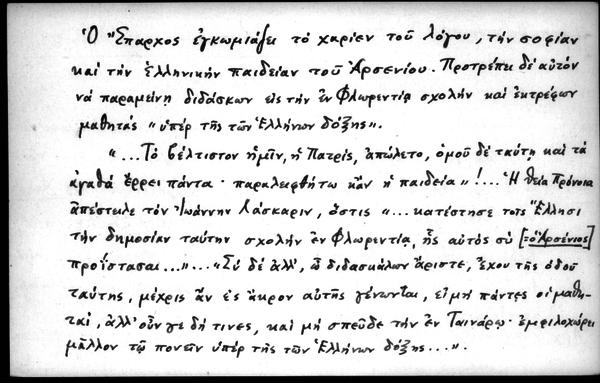 Ὁ Ἔπαρχος ἐγκωμιάζει τὸ χαρίεν τοῦ λόγου, τὴν σοφίαν
καὶ τὴν Ἑλληνικὴν παιδείαν τοῦ Ἀρσενίου. Προτρέπει δὲ αὐτὸν
νὰ παραμείνῃ διδάσκων εἰς τὴν ἐν Φλωρεντίᾳ σχολὴν καὶ ἐκτρέφων
μαθητὰς "ὑπὲρ τῆς τῶν Ἑλλήνων δόξης".
"...Τὸ βέλτιστον ἡμῖν, ἡ Πατρὶς, ἀπώλετο, ὁμοῦ δὲ ταύτῃ καὶ τὰ
ἀγαθὰ ἔρρει πάντα· παραλειφθήτω κἂν ἡ παιδεία"!... Ἡ θεία Πρόνοια
ἀπέστειλε τὸν Ἰωάννην Λάσκαριν, ὅστις "...κατέστησε τοῖς Ἕλλησι
τὴν δημοσίαν ταύτην σχολὴν ἐν Φλωρεντίᾳ, ἧς αὐτὸς σὺ [=ὁ Ἀρσένιος]
προΐστασαι..."..."Σὺ δὲ ἀλλ', ὦ διδασκάλων ἄριστε, ἔχου τῆς ὁδοῦ
ταύτης, μέχρις ἂν ἐς ἄκρον αὐτῆς γένωνται, εἰ μὴ πάντες οἱ μαθη-
ταὶ, ἀλλ' οὖν γε δή τινες, καὶ μὴ σπεῦδε τὴν ἐν Ταινάρῳ· ἐμφιλοχώρει
μᾶλλον τῷ πονεῖν ὑπὲρ τῆς τῶν Ἑλλήνων δόξης...".